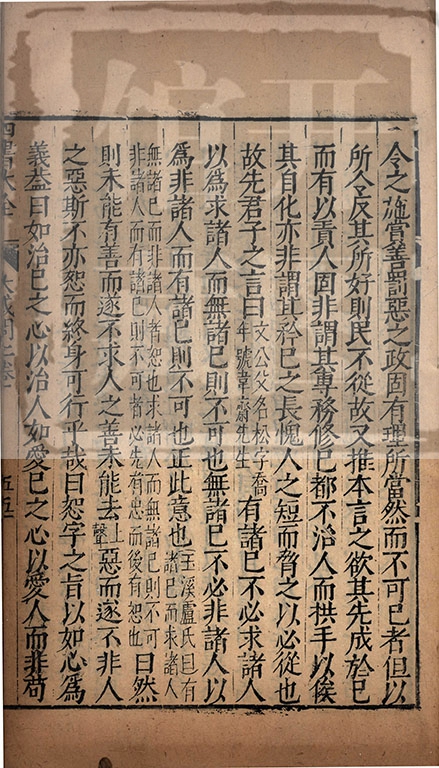 令之施賞善罰惡之政固有理所當然而不可已者但以
所令反其所好則民不從故又推本言之欲其先成於己
而有以責人固非謂其專務修己都不治人而拱手以俟
其自化亦非謂其矜己之長愧人之短而脅之以必從也
故先君子之言曰文公父名松字喬年號韋齋先生有諸己不必求諸人
以為求諸人而無諸己則不可也無諸己不必非諸人以
為非諸人而有諸己則不可也正此意也玉溪盧氏曰有諸己而求諸人
無諸己而非諸人者恕也求諸人而無諸己則不可非諸人而有諸己則不可者必先有忠而後有恕也曰然
則未能有善而遂不求人之善未能去上聲惡而遂不非人
之惡斯不亦恕而終身可行乎哉曰恕字之旨以如心為
義蓋曰如治己之心以治人如愛己之心以愛人而非苟
四書大全